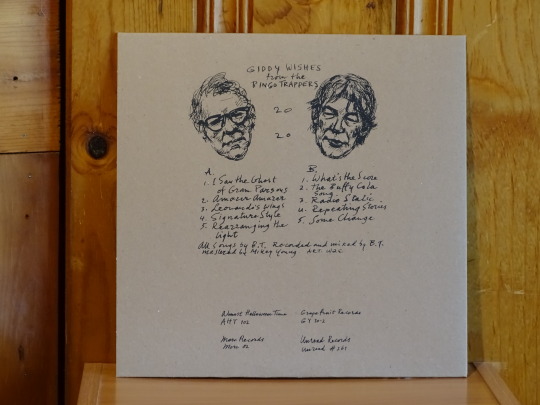 GIDDY WISHES
from the
BINGO TRAPPERS
20
20
A.
1. I Saw the Ghost
of Gram Parsons
2. Amour Amazer
3. Leonardo's Wings
4. Signature Style
5. Rearranging the
Light
B.
1. What's the Score
2. The Buffy Cola
Song
3. Radio Static
4. Repeating Stories
5. Some Change
All songs by B.T. Recorded and mixed by B.T.
Mastered by Mikey Young Art:
Almost Halloween Time
AHT
Grapefruit Records
GY
Morc Records
Morc 82
Unread Records
Unread #